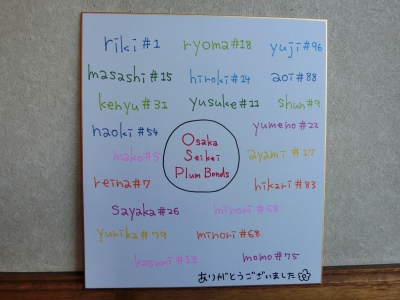 riki #1 ryoma #18 yuji #96
masashi #15 hiroki #14 aoi #88
kenyu #31 yusuke #11 shun #9
naoki #54 yumeno #22
Osaka
Seikei
Plum Bonds
mako #5 ayami #17
reina #7 hikari #83
sayaka #26 minori #58
yurika #79 minori #68
kasumi #13 momo #75
ありがとうございました